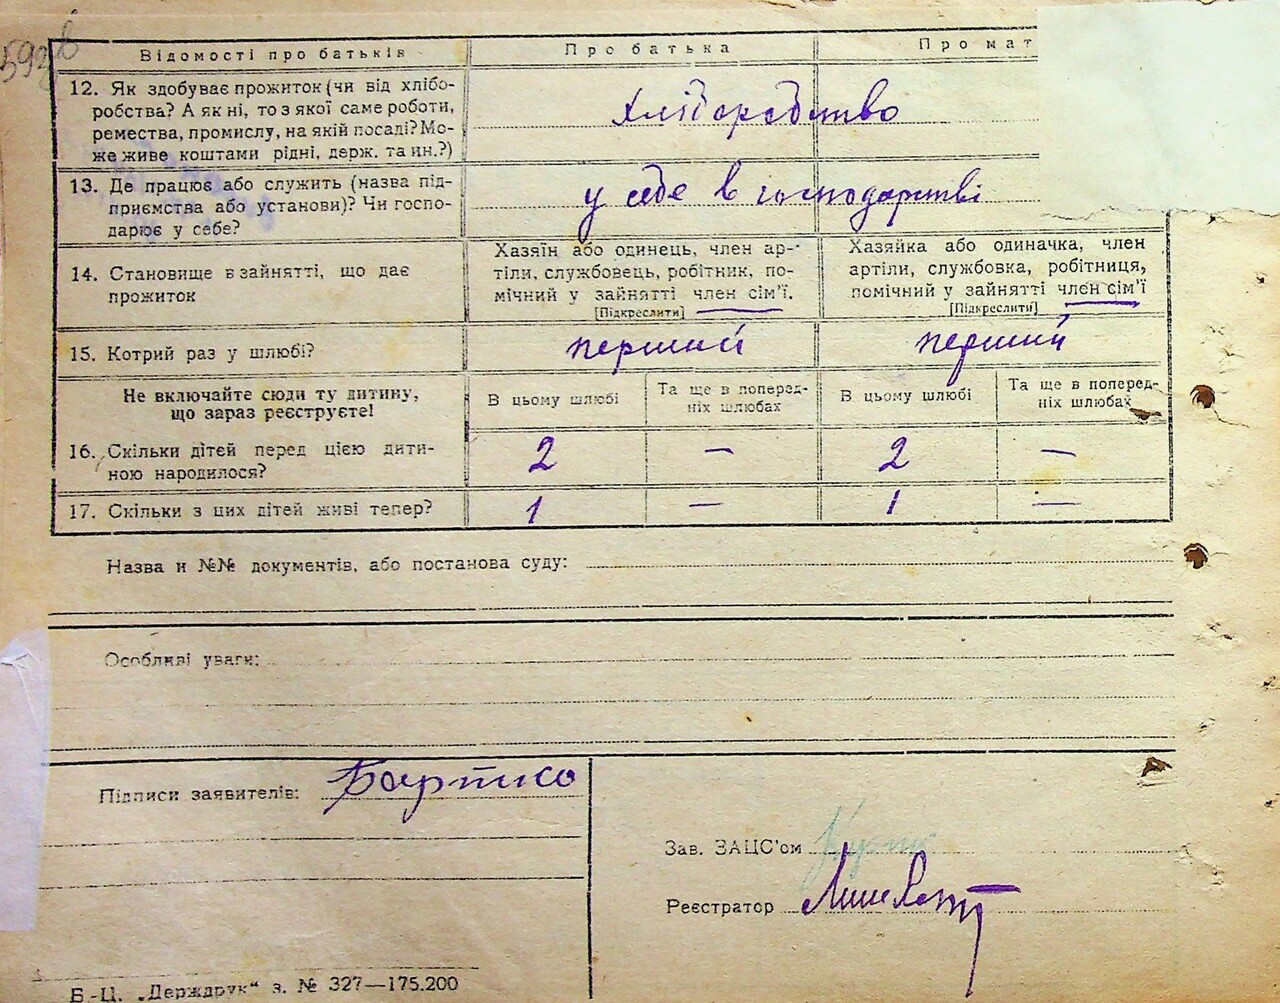 592 в
Відомості про батьків
Про батька
Про мат
12. Як здобуває прожиток (чи від хлібо-
робства? А як ні, то з якої саме роботи,
ремества, промислу, на якій посаді? Мо-
же живе коштами рідні, держ. та ин.?)
Хліборобство
13. Де працює або служить (назва під-
приємства або установи)? Чи госпо-
дарює у себе?
у себе в господарстві
14. Становище в зайнятті, що дає
прожиток
Хазяїн або одинець, член ар-
тіли, службовець, робітник, по-
мічний у зайнятті член сім'ї.
[Підкреслити]
Хазяйка або одиначка, член
артіли, службовка, робітниця,
помічний у зайнятті член сім'ї
[Підкреслити]
15. Котрий раз у шлюбі?
перший
перший
Не включайте сюди ту дитину,
що зараз реєструєте!
В цьому шлюбі
Та ще в поперед-
ніх шлюбах
В цьому шлюбі
Та ще в поперед-
ніх шлюбах
16. Скільки дітей перед цією дити-
ною народилося?
2
—
2
—
17. Скільки з цих дітей живі тепер?
1
—
1
—
Назва и №№ документів, або постанова суду:
Особливі уваги:
Підписи заявителів:
Зав. ЗАЦС'ом
Реєстратор
Б.-Ц. „Держдрук“ з. № 327—175.200